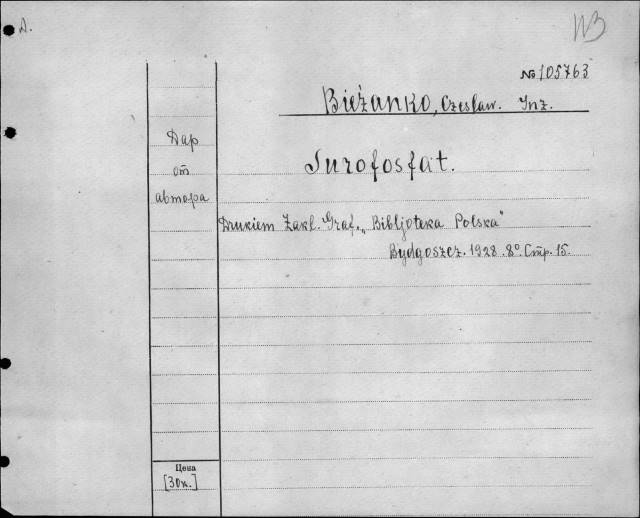 Д.
W3
№ 105763
Bieżanko, Czesław. Inz.
Дар
от
автора
Surofosfat.
Drukiem Zakl. Graf. „Bibljoteka Polska"
Bydgoszcz. 1928. 8°. Стр. 15.
Цена
[30к.]